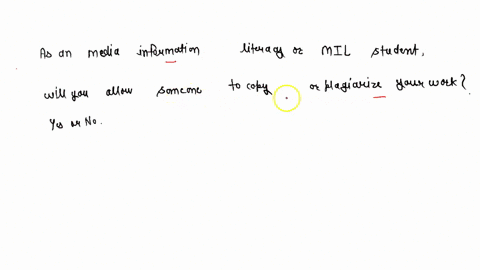 As an media information literacy or MIL student,
will you allow someone to copy or plagiarize your work?
Yes or No.